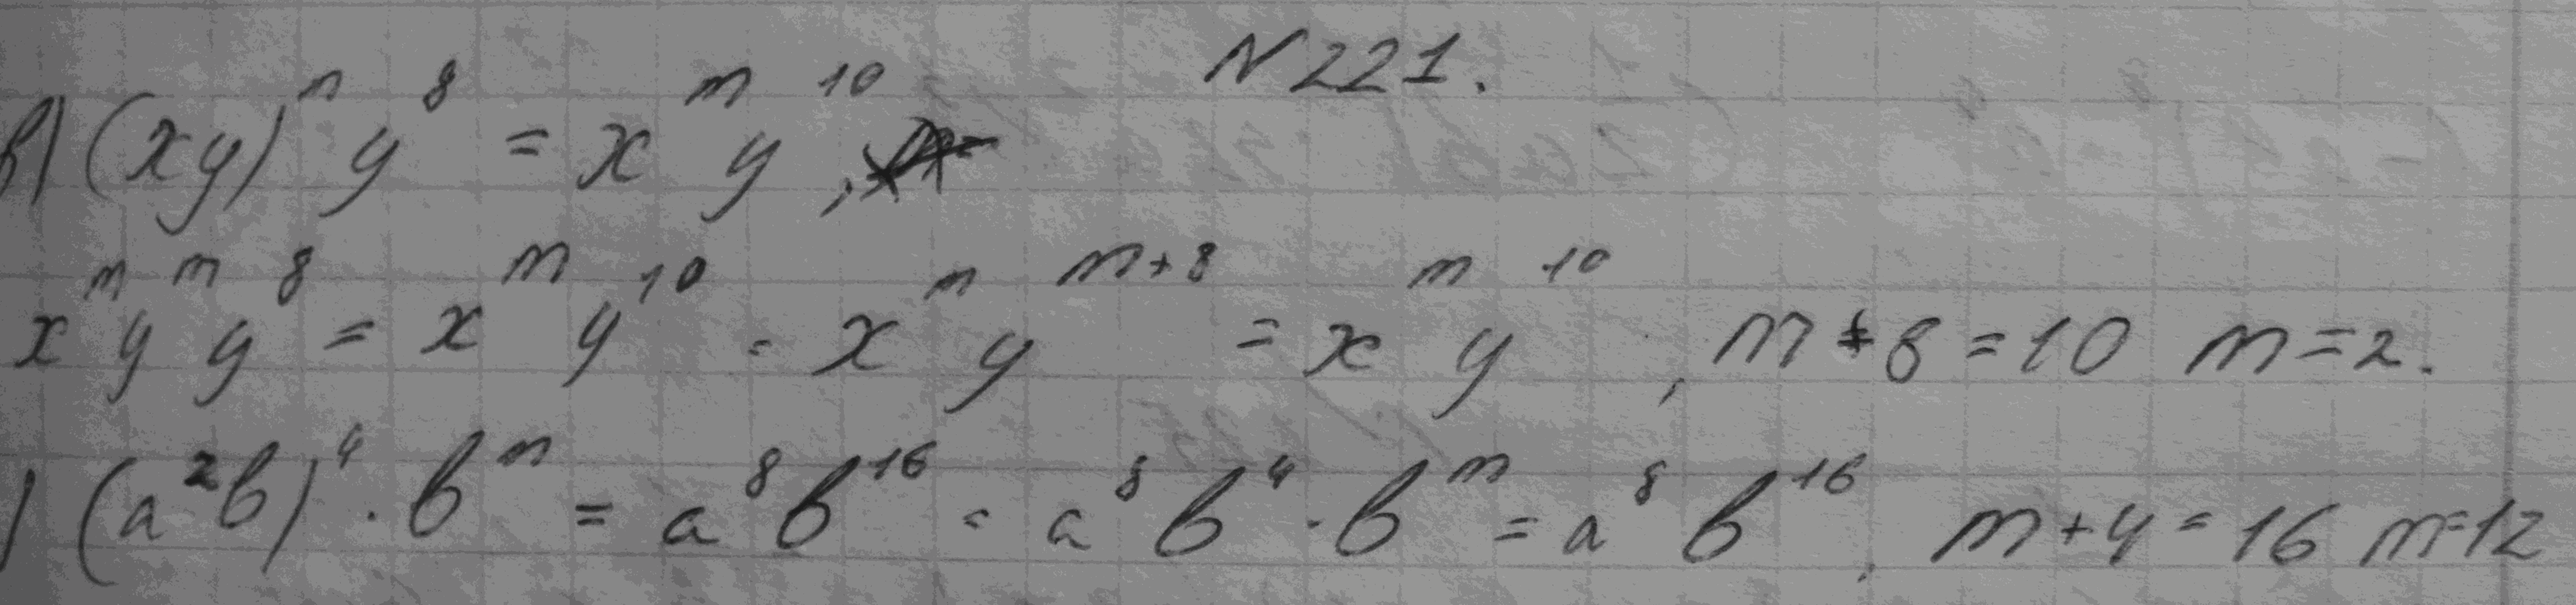 N 221.
в) (xy)^m y^8 = x^m y^10,
x^m y^m y^8 = x^m y^10 = x^m y^m+8 = x^m y^10, m + 8 = 10 m = 2.
) (a^2 b)^4 · b^m = a^8 b^16 = a^8 b^4 · b^m = a^8 b^16, m + 4 = 16 m=12